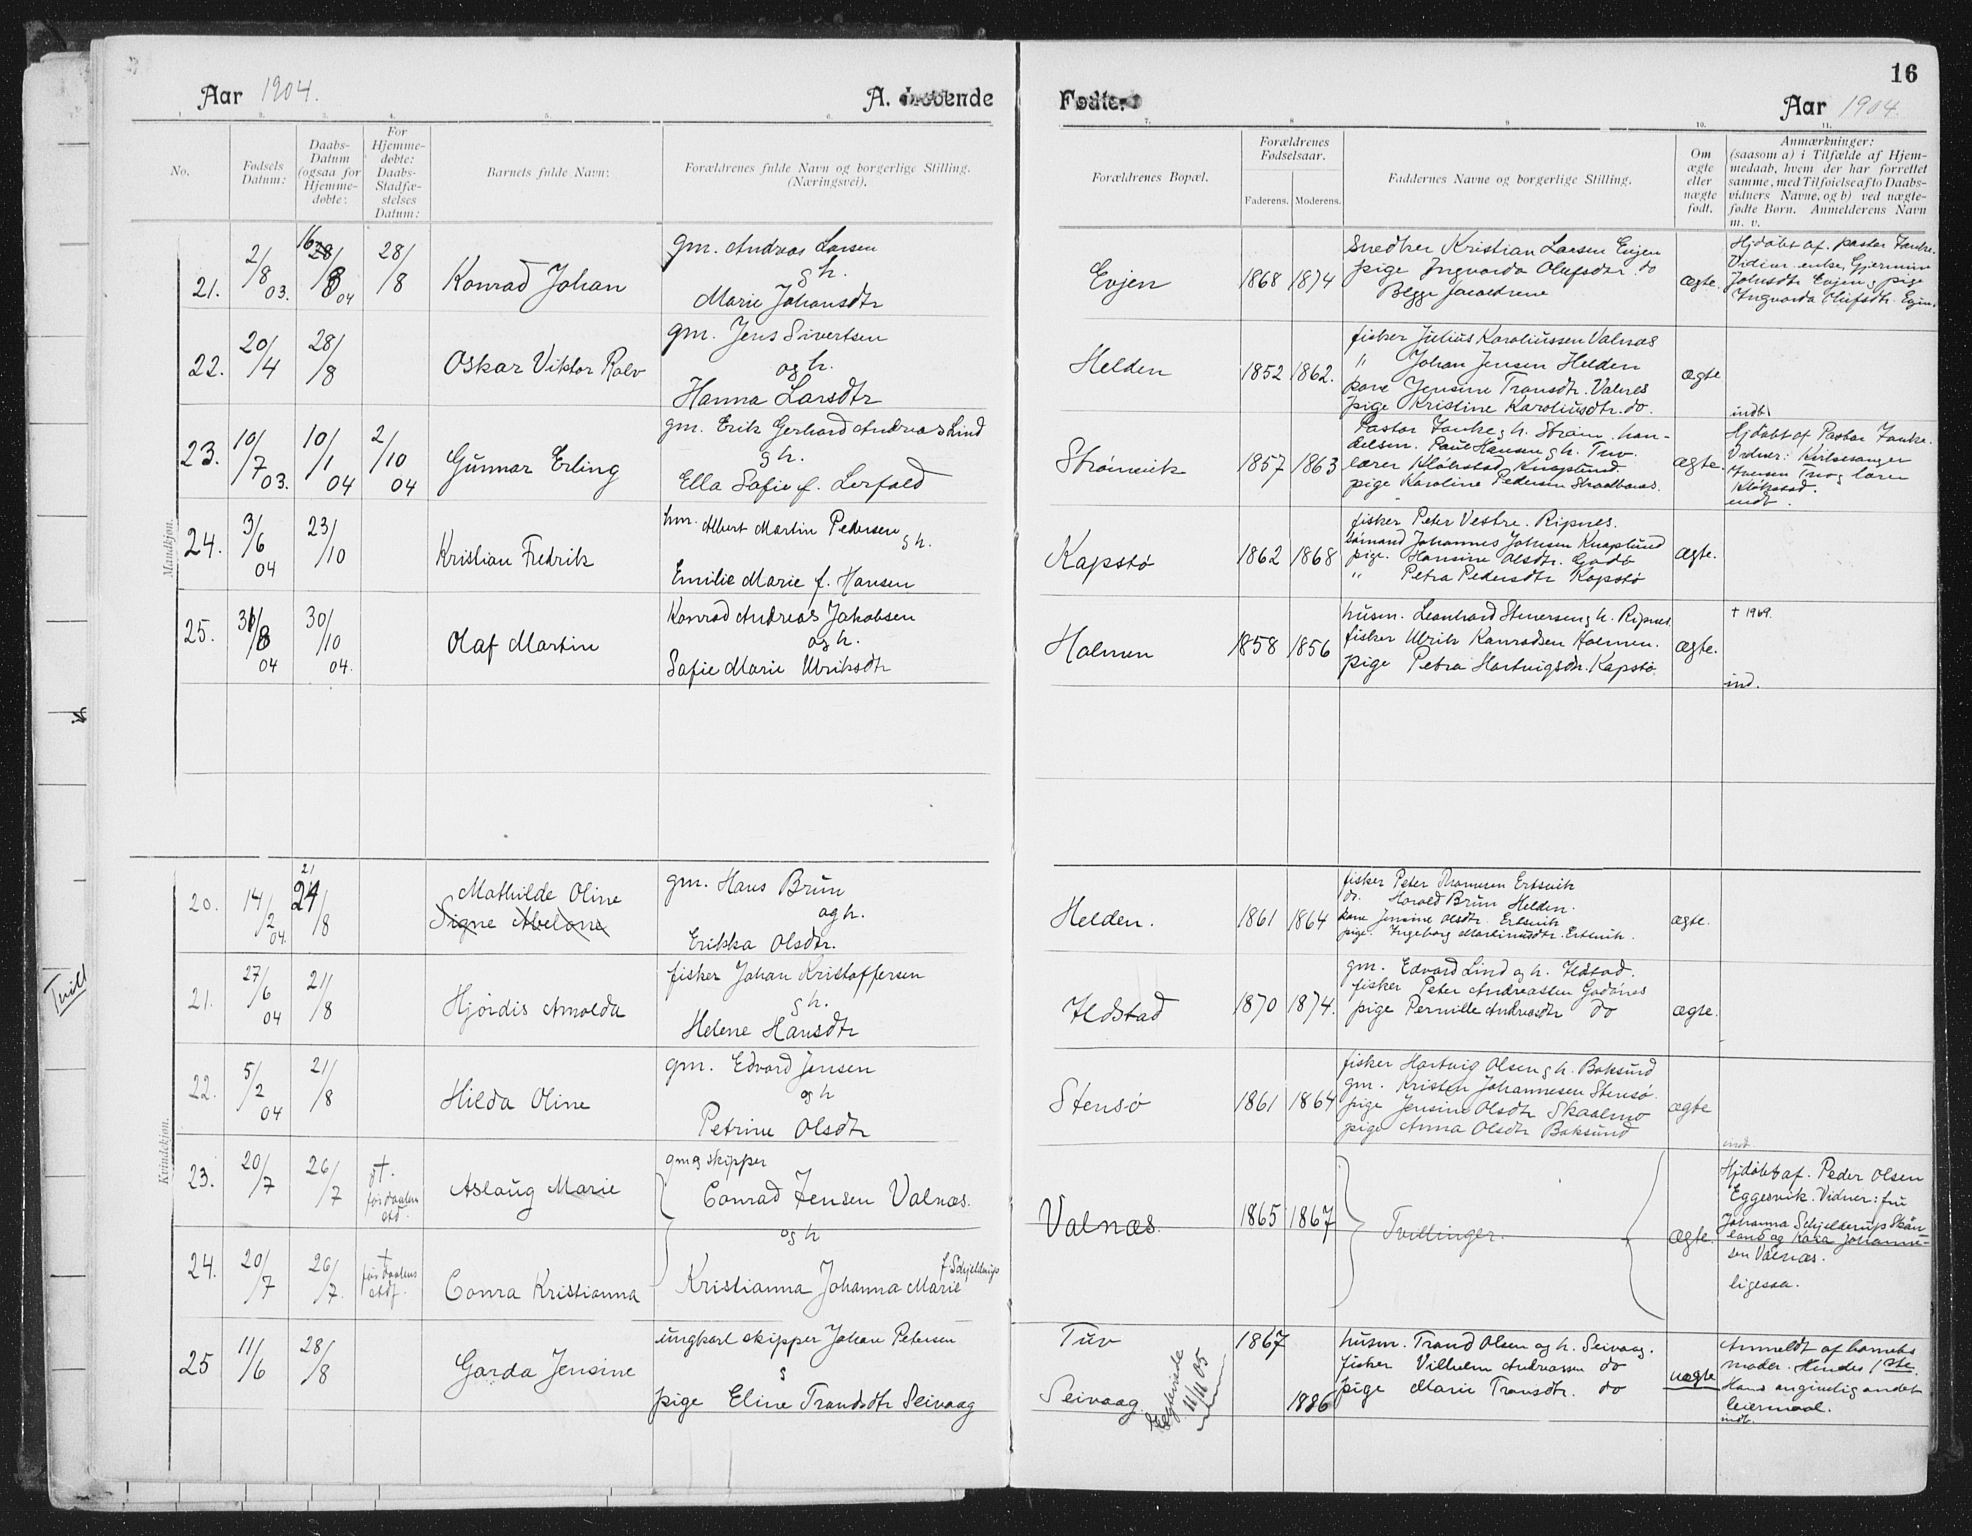 16
Aar 1904.
A. Levende
Fødte.
Aar 1904.
1. 2. 3. 4. 5. 6. 7. 8. 9. 10. 11.
No.
Fødsels Datum:
Daabs-Datum (ogsaa for Hjemme-døbte:
For Hjemme-døbte: Daabs-Stadfæ-stelses Datum:
Barnets fulde Navn:
Forældrenes fulde Navn og borgerlige Stilling. (Næringsvei).
Forældrenes Bopæl.
Forældrenes Fødselsaar.
Faderens. Moderens.
Faddernes Navne og borgerlige Stilling.
Om ægte eller uægte født.
Anmærkninger:
(saasom a) i Tilfælde af Hjem-
medaab, hvem der har forrettet
samme, med Tilføielse af to Daabs-
vidners Navne, og b) ved uægte-
fødte Børn. Anmelderens Navn
m. v.
Mandkjøn.
21.
2/8 03.
16 28/8 04
28/8
Konrad Johan
gm. Andreas Larsen
g h.
Marie Johansdtr
Evjen
1868 1874
Snedker Kristian Larsen Evjen
pige Ingvarda Olufsdtr do
Begge forældrene
ægte.
Hjdøbt af. pastor Tanke.
Vidner enke Gjermine
Johnsdtr Evjen g pige
Ingvarda Olufsdtr. Evjen
22.
20/4
28/8
Oskar Viktor Rolv
gm. Jens Sivertsen
og h.
Hanna Larsdtr
Helden
1852 1862.
fisker Julius Karoliussen Valnæs
" Johan Jensen Helden
kone Jensine Transdtr. Valnes
pige Kristine Karoliusdtr. do.
ægte
indt.
23.
10/7 03.
10/1 04
2/10 04
Gunnar Erling
gm. Erik Gerhard Andreas Lind
g h.
Ella Sofie f. Lerfald
Strømvik
1857 1863
Pastor Tanke g h. Strøm. han-
delsm. Paul Hansen g h. Tuv.
lærer Kløkstad Knaplund.
pige Karoline Pedersen
ægte.
Hjdøbt af Pastor Tanke.
Vidner: Kirkesanger
Jensen Tuv og lærer
Kløkstad.
indt.
24.
3/6 04
23/10
Kristian Fredrik
hm. Albert Martin Pedersen
g h.
Emilie Marie f. Hansen
Kapstø
1862 1868
fisker Peter Vestre. Ripnes.
sømand Johannes Johnsen Knaplund
pige. Hansine Olsdtr. Godø
" Petra Pedersdtr Kapstø
ægte.
25.
31/8 04
30/10 04.
Olaf Martin
Konrad Andreas Jakobsen
og h.
Sofie Marie Ulriksdtr
Holmen
1858 1856
husm. Leonhard g h. Ripnes
fisker Ulrik Konradsen Holmen.
pige Petra Hartvigsdtr. Kapstø.
ægte.
† 1969.
ind.
Kvindekjøn.
20.
14/2 04.
21 24/8
Mathilde Oline
Signe Abelone
gm. Hans Brun
og h.
Erikka Olsdtr.
Helden.
1861 1864
fisker Peter Thomesen Ertsvik
do. Harold Brun Helden.
kone Jensine Olsdtr. Ertsvik
pige. Ingeborg Martinusdtr. Ertsvik.
ægte.
21.
27/6 04
21/8
Hjørdis Arnolda
fisker Johan Kristoffersen
g h.
Helene Hansdtr
Ildstad
1870 1874.
gm. Edvard Lind og h. Ildstad.
fisker Peter Andreassen Godønes
pige Pernille Andreasdtr do
ægte.
22.
5/2 04
21/8
Hilda Oline
gm. Edvard Jensen
og h
Petrine Olsdtr
Stensø
1861 1864
fisker Hartvig Olsen g h. Boksund
gm. Kristen Johannesen Stensø.
pige Jensine Olsdtr Skaalmo
pige Anna Olsdtr Boksund
ægte
ind.
23.
20/7
26/7
†.
før daabens
stdf.
Aslaug Marie
gm og skipper
Conrad Jensen Valnæs.
og h
Valnæs.
1865 1867
Tvillinger.
ægte.
Hjdøbt af. Peder Olsen
Eggesvik. Vidner: fru
Johanna Schjelderup Skån-
land og Kaia Johanne-
sen Valnæs.
24.
20/7
26/7.
†
før daabens
stdf.
Conra Kristianna
f. Schjelderup
Kristianna Johanna Marie
ligesaa.
25
11/6
28/8
Garda Jensine
ungkarl skipper Johan Petersen
g
pige Eline Trondsdtr Seivaag
Tuv
Seivaag.
Egteviede 11/11 05
1867
1886
husm. Trond Olsen og h. Seivaag.
fisker Vilhelm Andreassen do
pige Marie Transdtr. do
uægte
Anmeldt af barnets
moder. Hendes 1ste.
Hans angivelig andet
leiermaal.
indt.
Tvill